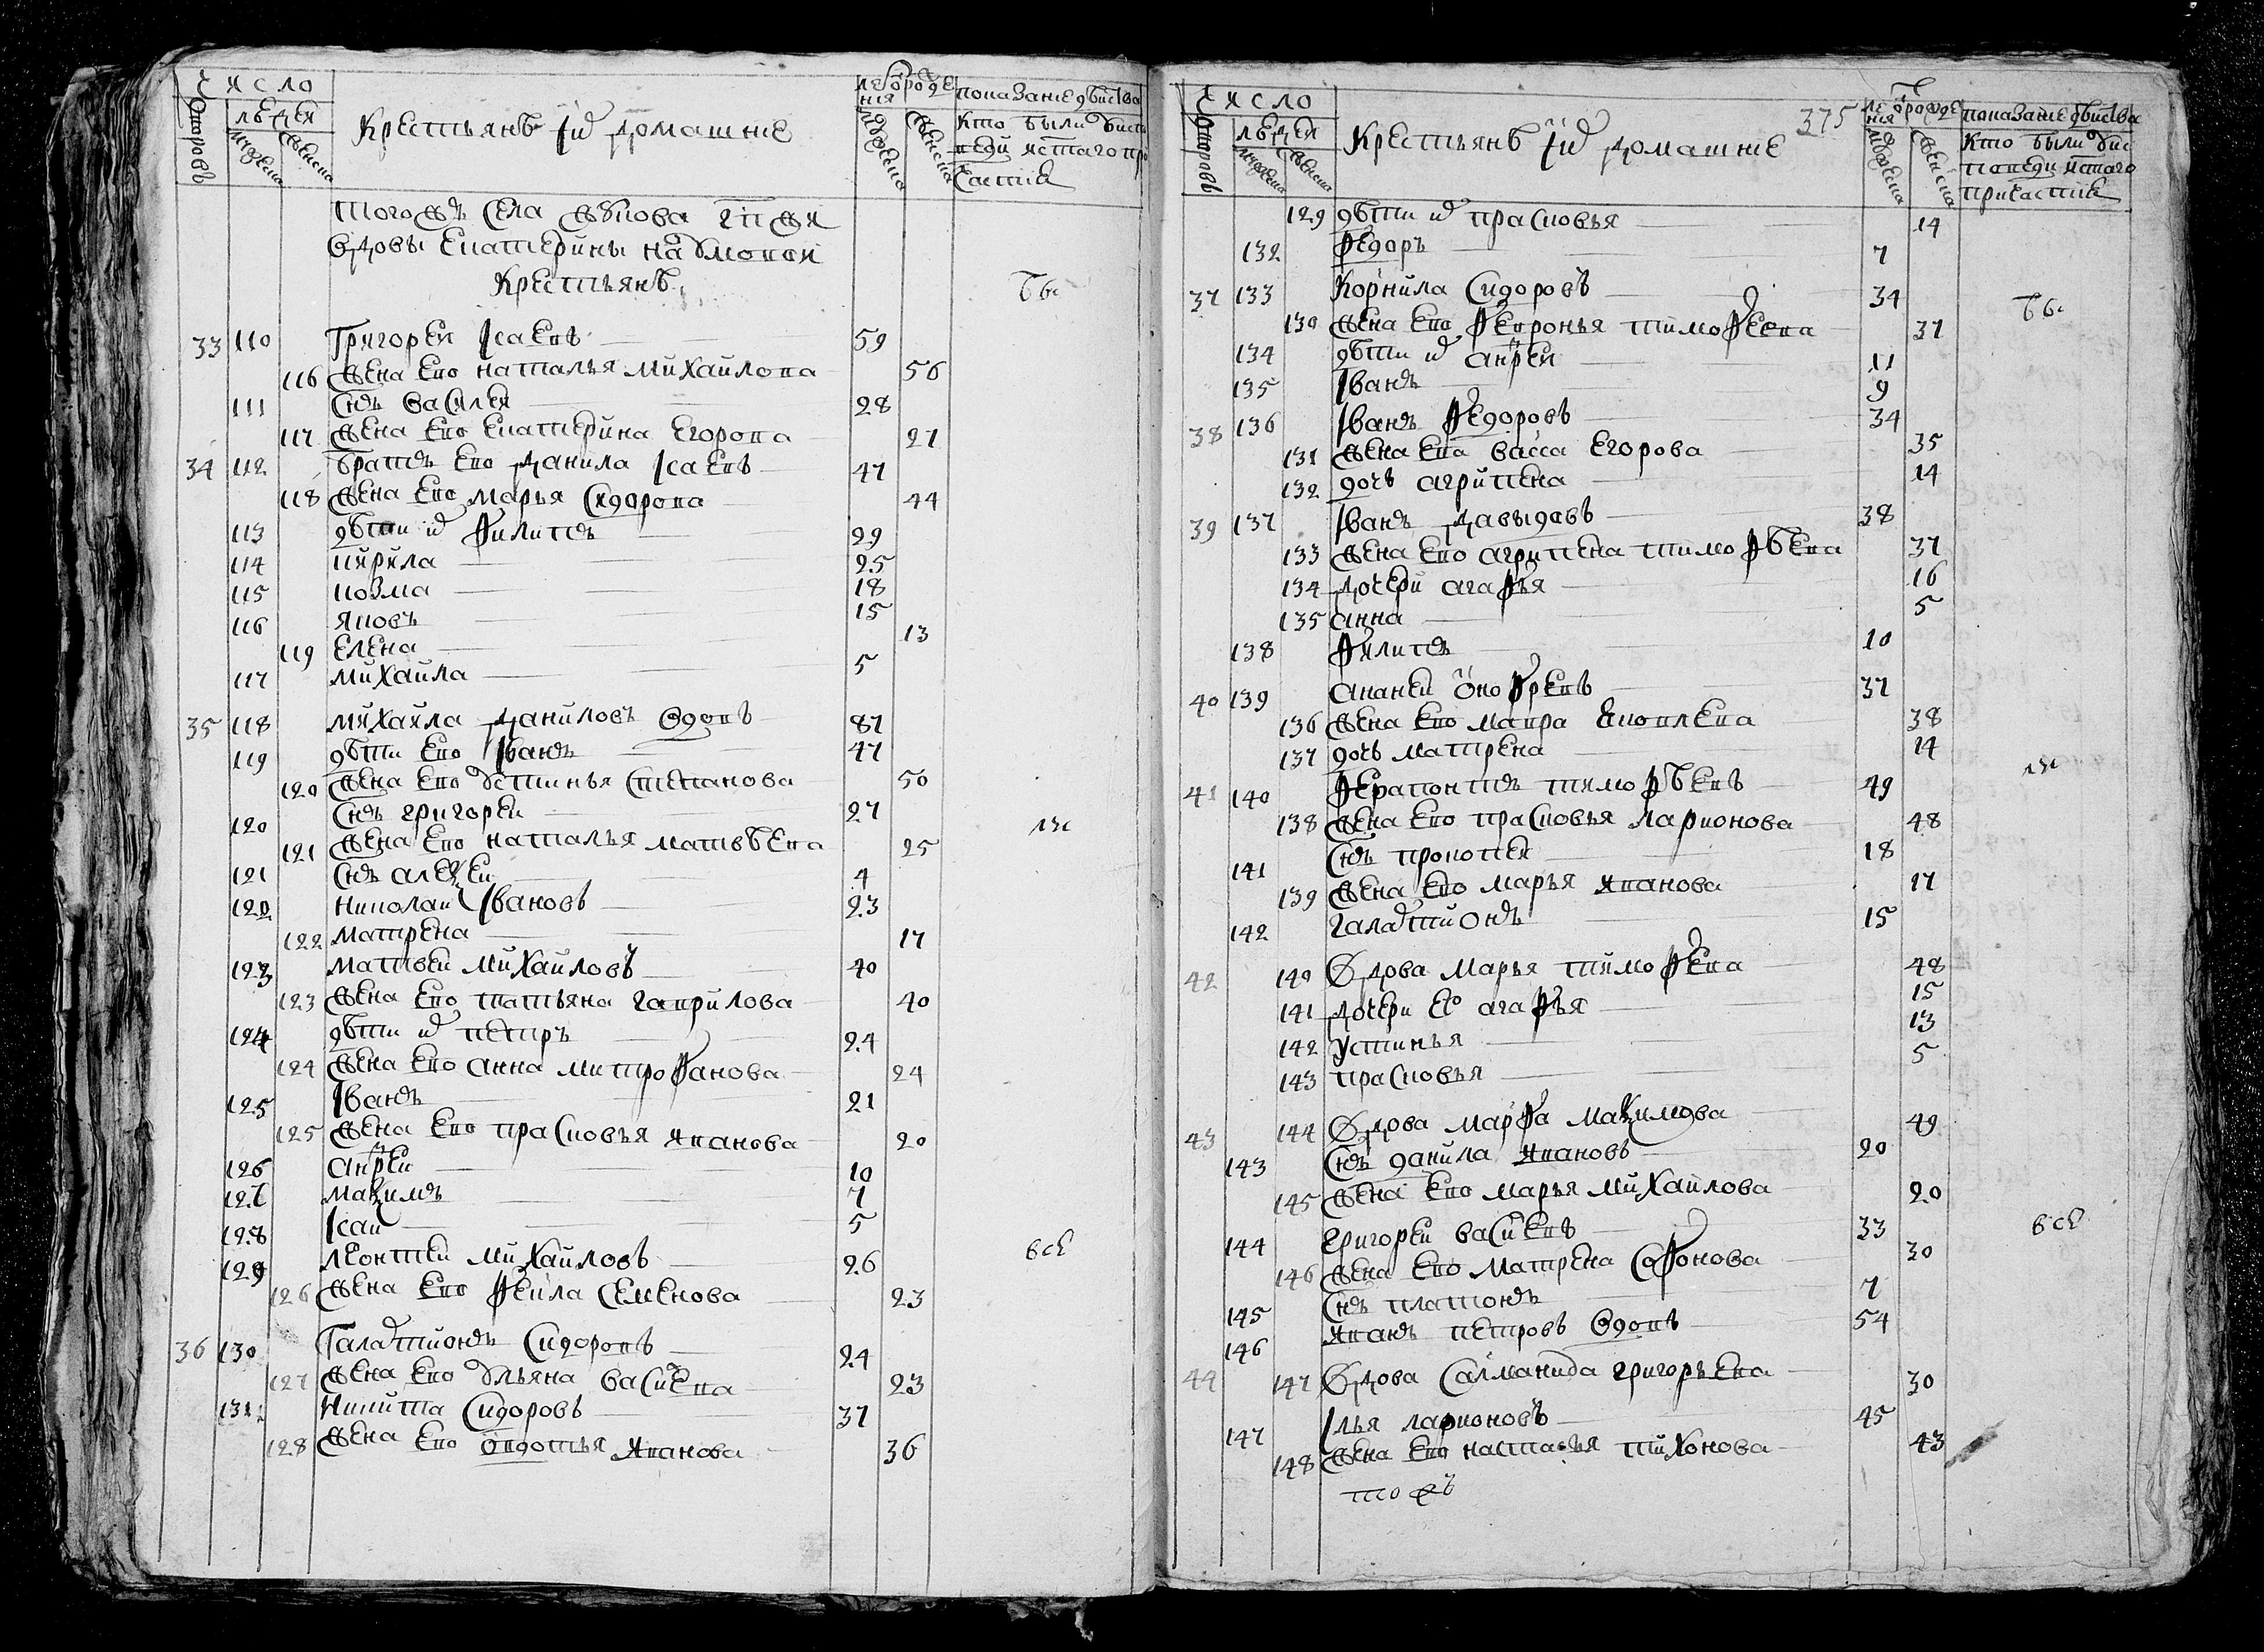 число
дворовъ
людей
мужеска
женска
Крестьянѣ їхъ домашние
лѣ от рожде
ния
мужеска
женска
показание дѣиства
кто были ѹ испо
веди и стаго при
частия
того жъ села
вдовы Екатерины
Крестьянѣ
33 110 Григореи Ісаевъ 59
116 жена ево наталья михаилова 56
111 снъ василеи 28
117 жена ево екатерина егорова 27
34 112 братъ ево данила Ісаевъ 47
118 жена ево марья Сидорова 44
113 дѣти ихъ филипъ 29
114 кирила 25
115 козма 18
116 яковъ 15
119 елена 13
117 михаила 5
35 118 михаила даниловъ вдовъ 87
119 дѣти ево Іванъ 47
120 жена ево ѹстинья степанова 50
120 снъ григореи 27
121 жена ево наталья матвѣева 25
121 снъ алеѯеи 4
122 николаи Івановъ 23
122 матрена 17
123 матвеи михаиловъ 40
123 жена ево татьяна гаврилова 40
124 дѣти ихъ петръ 24
124 жена ево анна митрофанова 24
125 Іванъ 21
125 жена ево прасковья иванова 20
126 андреи 10
127 маѯимъ 7
128 Ісаи 5
129 леонтеи михаиловъ 26
все
126 жена ево фекла семенова 23
36 130 Галактионъ Сидоровъ 24
127 жена ево ѹльяна васильева 23
131 Никита Сидоровъ 37
128 жена ево овдотья иванова 36
375
число
дворовъ
людей
мужеска
женска
Крестьянѣ їхъ домашние
лѣ от рожде
ния
мужеска
женска
показание дѣиства
кто были ѹ ис
поведи и стаго
причастия
129 дѣти ихъ прасковья 14
132 федоръ 7
37 133 Корнила Сидоровъ 34
130 жена ево февронья тимофеева 37
134 дѣти ихъ андреи 11
135 Іванъ 9
38 136 Іванъ федоровъ 34
131 жена ева васса егорова 35
132 дочь агрипена 14
39 137 Іванъ давыдовъ 38
133 жена ево агрипена тимофѣева 37
134 дочери агафья 16
135 анна 5
138 филипъ 10
40 139 ананеи онофревъ 37
136 жена ево мавра яковлева 38
137 дочь матрена 14
41 140 ферапонтъ тимофѣевъ 49
138 жена ево прасковья ларионова 48
141 снъ прокопеи 18
139 жена ево марья иванова 17
142 галактионъ 15
42 140 вдова марья тимофеева 48
141 дочери ее агафья 15
142 устинья 13
143 прасковья 5
43 144 вдова марфа маѯимова 49
143 снъ данила ивановъ 20
145 жена ево марья михаилова 20
144 григореи васильевъ 33
все
146 жена ево матрена софонова 30
145 снъ платонъ 7
146 иванъ петровъ вдовъ 54
44 147 вдова Салманида григорьева 30
147 Ілья ларионовъ 45
148 жена ево настасья тихонова 43